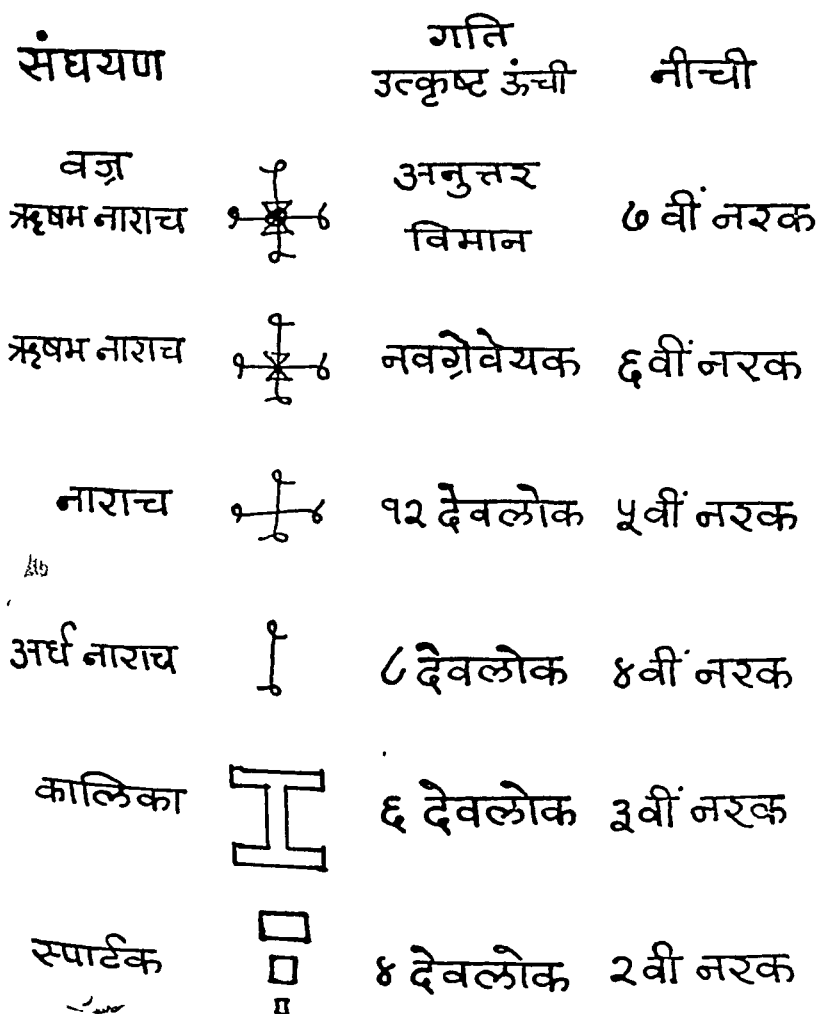 गति
संघयण उत्कृष्ट ऊंची नीची
वज्र अनुत्तर
ऋषभ नाराच विमान ७ वीं नरक
ऋषभ नाराच नवग्रेवेयक ६वीं नरक
नाराच १२ देवलोक ५वीं नरक
अर्ध नाराच ८ देवलोक ४वीं नरक
कालिका ६ देवलोक ३वीं नरक
स्पार्टक ४ देवलोक २वी नरक